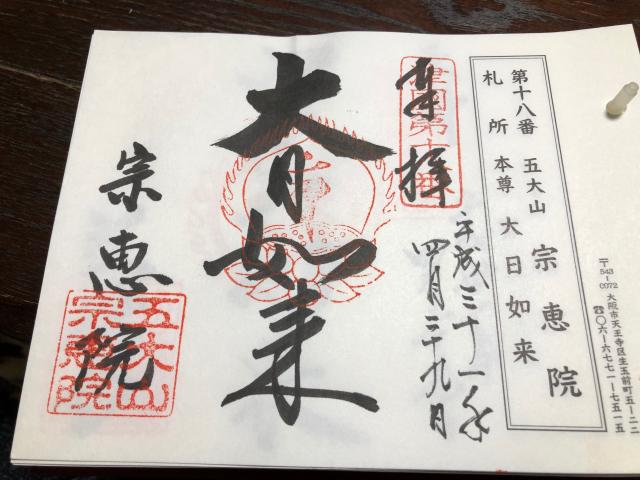 〒543-0072 大阪市天王寺区生玉前町五ー二二
☎〇六ー六七七一ー七五一五
第十八番 五大山 宗恵院
札所本尊 大日如来
奉拝
平成三十一年
四月二十九日
大日如来
宗恵院
五大山
宗恵院